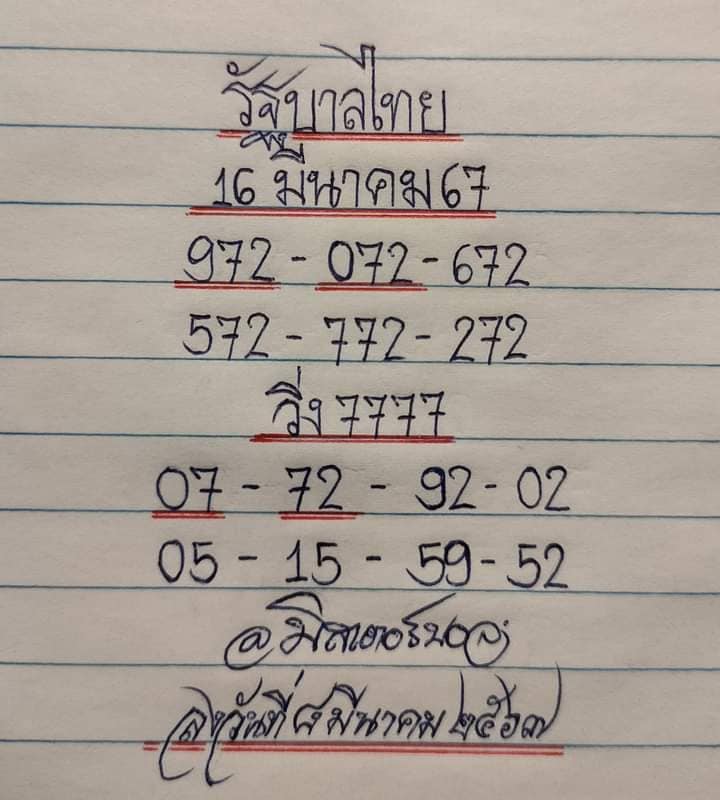 รัฐบาลไทย
16 มีนาคม 67
972 - 072 - 672
572 - 772 - 272
วิ่ง 7777
07 - 72 - 92 - 02
05 - 15 - 59 - 52
@มิสเตอร์
ลงวันที่ ๘ มีนาคม ๒๕๖๗